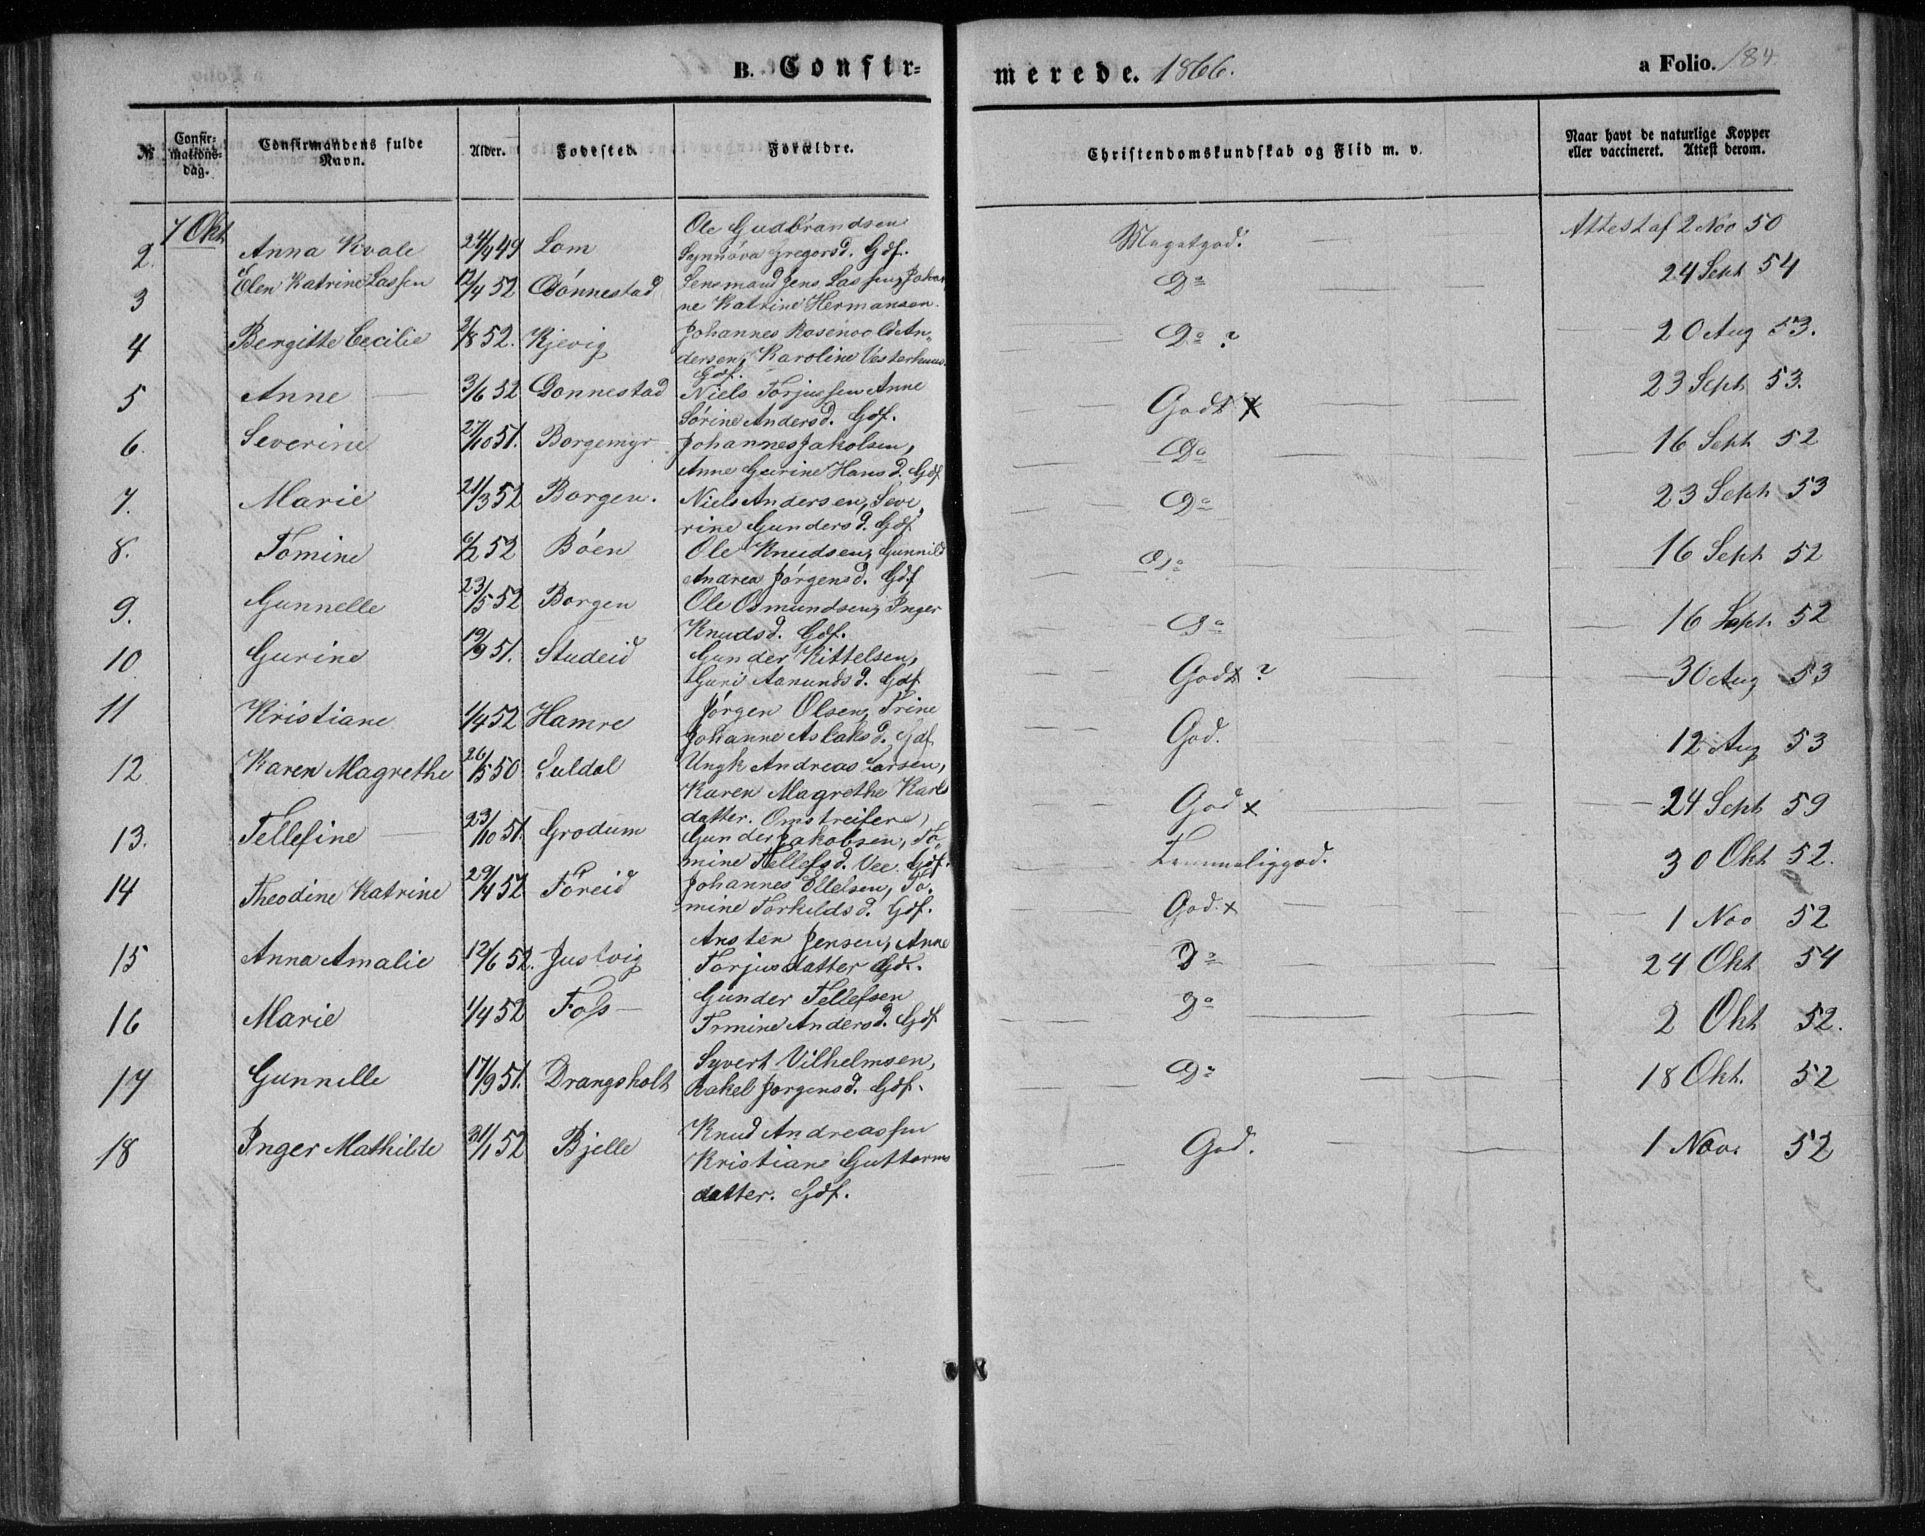 B. Confir-
merede. 1866.
a Folio. 184
№
Confir-
mations-
dag.
Confirmandens fulde
Navn.
Alder.
Fødested.
Forældre.
Christendomskundskab og Flid m. v.
Naar havt de naturlige Kopper
eller vaccineret. Attest derom.
7 Okt
Ole Gudbrandsen
2. Anna Kvale 24/4 49 Lom Synnöva Gregersd. Gdf. Megetgod. Attest af 2 Nov 50
3 Elen Katrine Lassen 12/4 52 Dönnestad Lensmand Jens Lassen, Johan
ne Katrine Hermansen. Do 24 Sept 54
4 Bergitte Cecilie 2/8 52. Kjevig Johannes Rosenvold An-
dersen, Karoline Vesterhuus
Gdf. Do ? 20 Aug 53.
5 Anne 3/6 52 Donnestad Niels Torjussen Anne
Sörine Andersd. Gdf. Godt x 23 Sept 53.
6. Severine 27/10 51. Borgemyr Johannes Jakobsen,
Anne Gurine Hansd. Gdf Do 16 Sept 52
7. Marie 21/3 52 Borgen. Niels Andersen, Seve-
rine Gundersd. Gdf Do 23 Sept 53
8. Tomine 6/2 52 Böen Ole Knudsen, Gunnild
Andrea Jörgensd. Gdf Do 16 Sept 52
9. Gunnelle 23/5 52 Borgen Ole Osmundsen, Inger
Knudsd. Gdf. Do 16 Sept. 52
10. Gurine 19/9 51. Studeid Gunder Kittelsen,
Guri Aanundsd. Gdf Godt ? 30 Aug 53
11 Kristiane 1/4 52 Hamre Jörgen Olsen, Trine
Johanne Aslaksd. Gdf God. 12 Aug 53
12 Karen Magrethe 26/5 50. Suldal Ungk Andreas Larsen,
Karen Magrethe Karls
datter. Omstreifere, God x 24 Sept 59
13. Tellefine 23/10 51. Grodum Gunder Jakobsen, To-
mine Tellefsd. Vee. Gdf. Temmeliggod. 30 Okt 52.
14 Theodine Katrine 29/4 52 Föreid Johannes Ellefsen, To-
mine Torkildsd. Gdf. God. x 1 Nov 52
15 Anna Amalie 12/6 52. Justvig Ansten Jensen, Anne
Torjusdatter Gdf. Do 24 Okt 54
16 Marie 1/4 52 Foss Gunder Tellefsen
Tomine Andersd. Gdf Do 2 Okt 52.
17 Gunnille 17/9 51. Drangsholt Syvert Vilhelmsen,
Rakel Jorgensd. Gdf. Do 18 Okt. 52
18 Inger Mathilde 31/1 52 Bjelle Knud Andreassen
Kristiane Guttorms
datter. Gdf. God. 1 Nov. 52